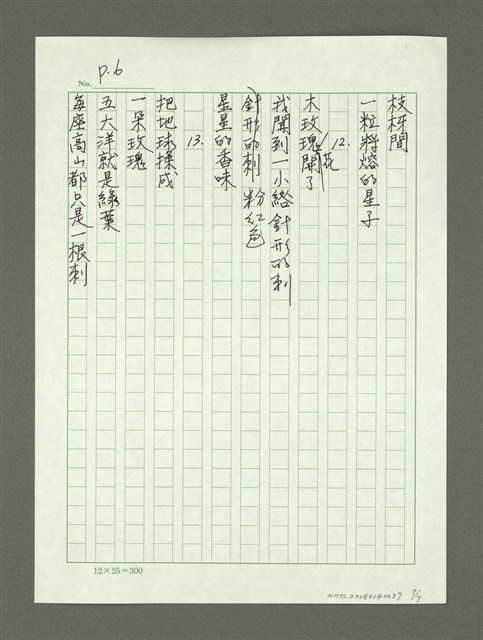 No. p.6
枝枒間
一粒將熔的星子
12.
木玫瑰花開了
我聞到一小綹針形的刺
針形的刺 粉紅色
星星的香味
13.
把地球揉成
一朵玫瑰
五大洋就是綠葉
每座高山都只是一根刺
12×25=300
NMTL20180140037 7/7